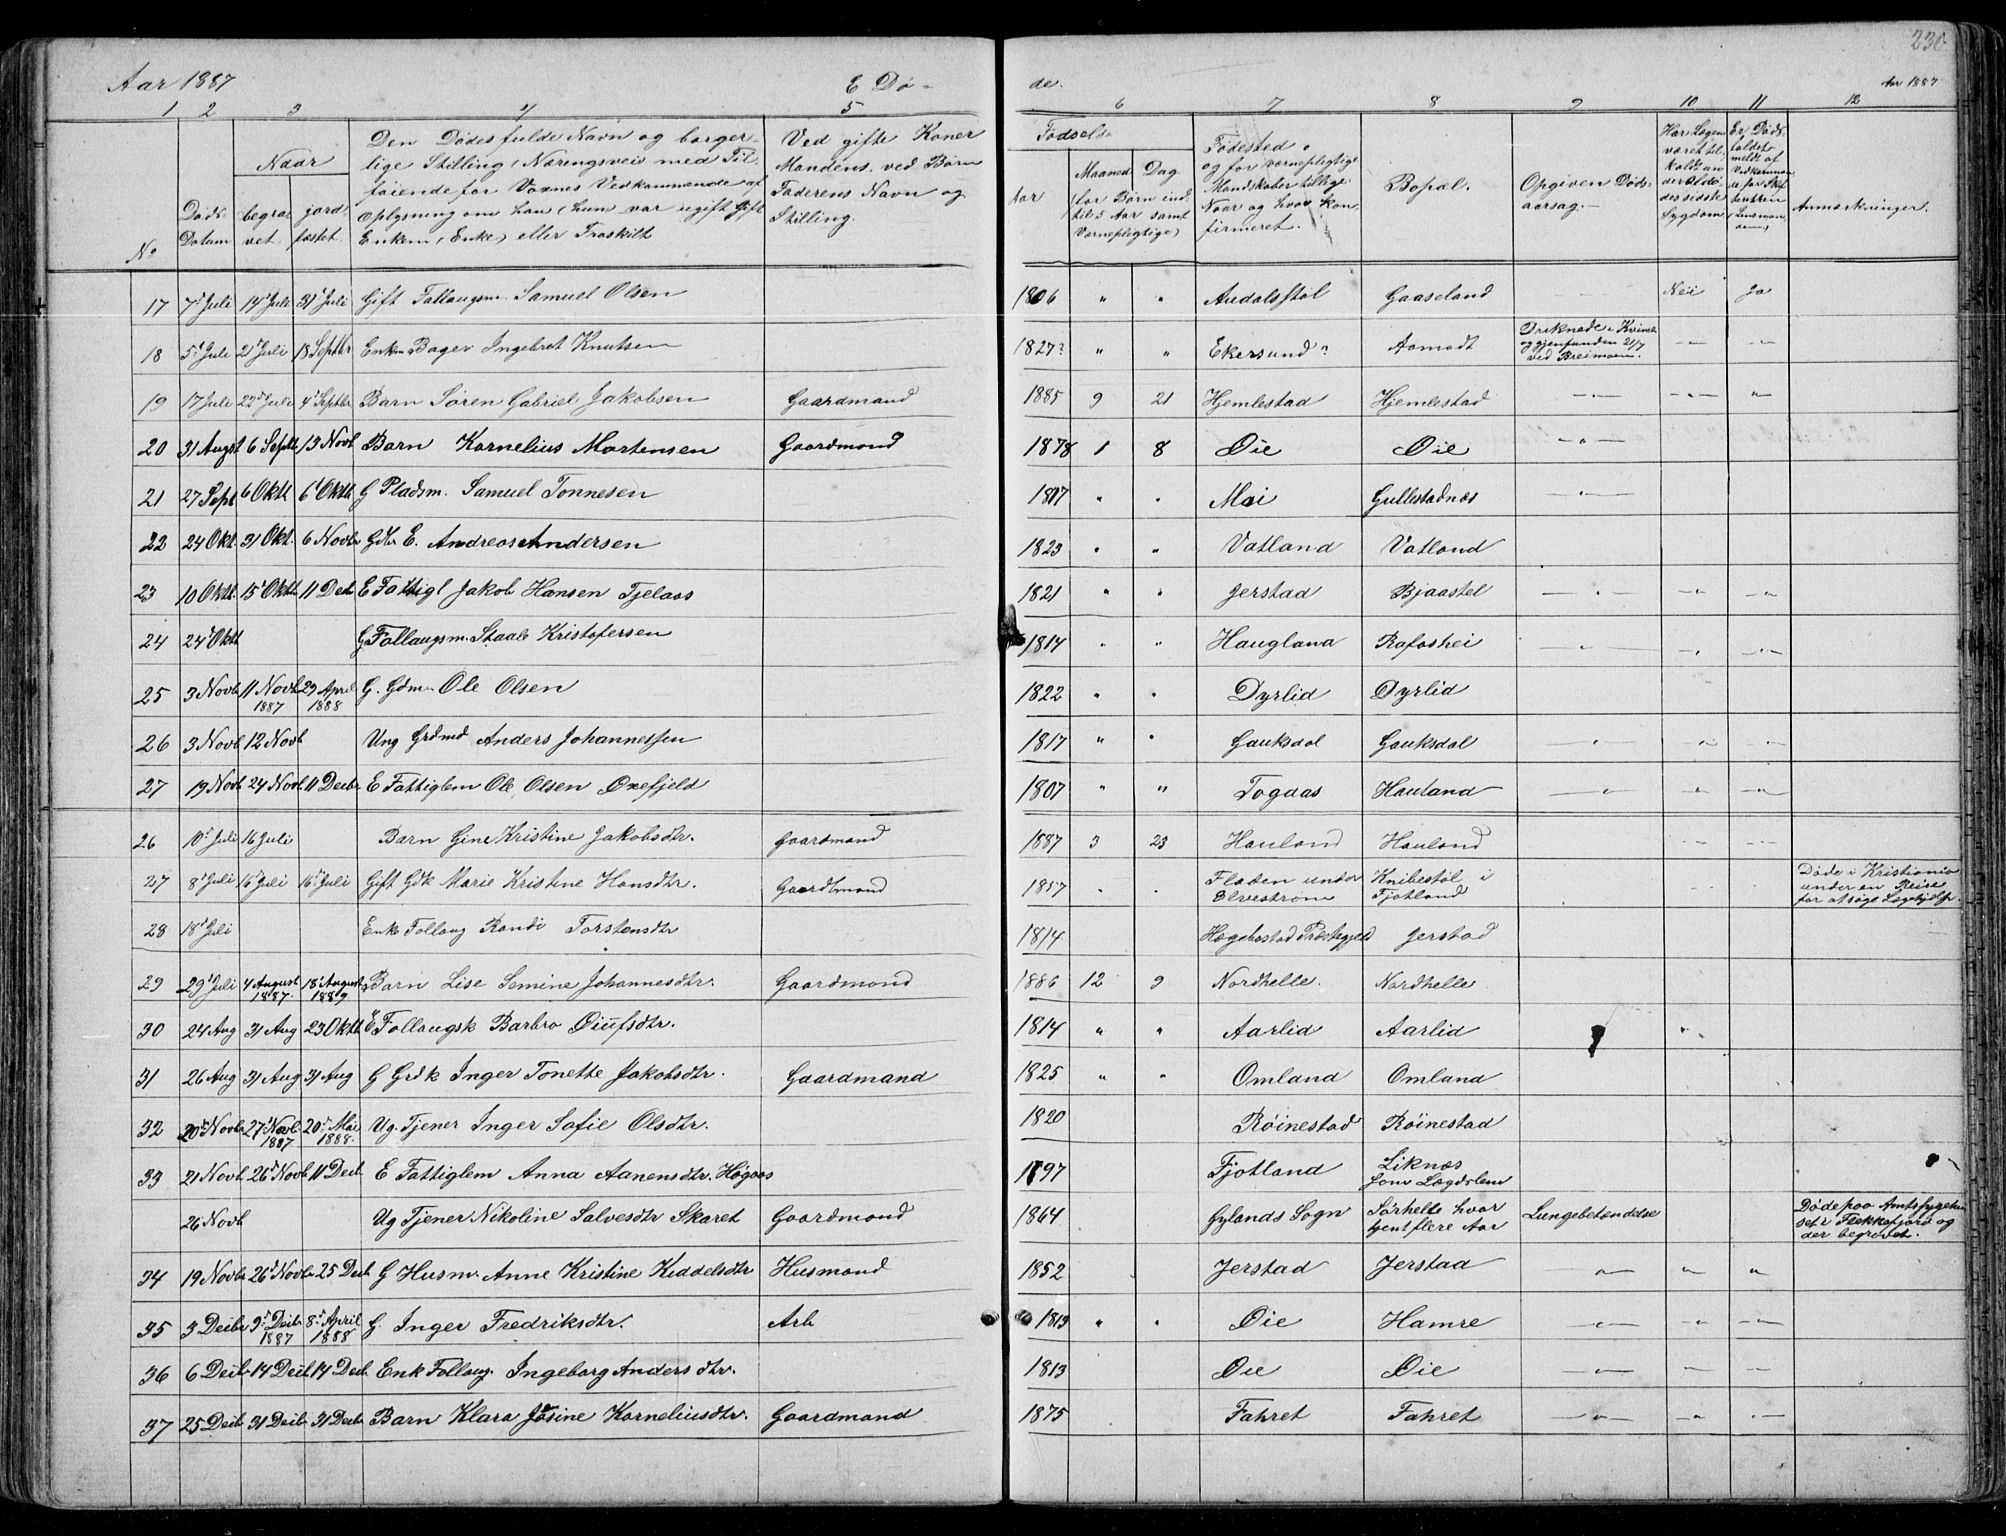 230
Aar 1887 E Dø- de. Aar 1887
1 2 3 4 5 6 7 8 9 10 11 12
No
Døds-
Datum
Naar
begra-
vet.
jord-
fæstet.
Den Dødes fulde Navn og borger-
lige Stilling (Næringsvei med Til-
føiende for Voxnes Vedkommende af
Oplysning om han (hun var ugift Gift
Enkem, Enke) eller Fraskilt
Ved gifte Koner
Mandens, ved Børn
Faderens Navn og
Stilling.
Fødsels-
Aar
Maaned Dag
(for Børn ind-
til 5 Aar samt
Værnepligtige)
Fødested
og for værnepligtige
Mandskaber tillige
Naar og hvor kon-
firmeret.
Bopæl.
Opgiven Døds-
aarsag.
Har Lægen
været til-
kaldt un-
der Afdø-
des sidste
Sygdom
Er Døds-
faldet
meldt af
Vedkommen-
de for Skif-
teretten
(Lensman-
den)
Anmærkninger.
17 7d Juli 14d Juli 31d Juli Gift Follaugsm. Samuel Olsen 1806 " " Audalsstøl Gaaseland Nei Ja
18 5d Juli 21d Juli 18 Septbr Enkm Bager Ingebret Knutsen 1827? " " Ekersund? Aamodt Druknede i Kvina og gjenfunden 21/7 ved Breimoen. -"- -"-
19 17 Juli 22d Juli 4d Septbr Barn Søren Gabriel Jakobsen Gaardmand 1885 9 21 Hjemlestad Hjemlestad -"- -"- "
20 31 Augst 6 Septb 13 Novb Barn Kornelius Mortensen Gaardmand 1878 1 8 Øie Øie -"-
21 27 Sept 6 Oktb 6 Oktb G Pladsm. Samuel Tønnesen 1807 " " Moi Gullestadnæs -"-
22 24 Okt. 31 Okt. 6 Novbr Gdbr E. Andreas Andersen 1823 " " Vatland Vatland
23 10 Oktb. 15d Oktb 11 Decb E Fattigl Jakob Hansen Tjelaas 1821 " " Jerstad Bjaastøl -"- -"- -"-
24 24d Oktb G Follaugsm. Staale Kristofersen 1814 " " Haugland Rafoshei -"- -"- -"-
25 3 Novb 11 Novb 1887 29 April 1888 G. Gdm. Ole Olsen 1822 " " Dyrlid Dyrlid
26 3 Novb 12 Novb Ung Grdmd Anders Johannessen 1817 " " Gauksdal Gauksdal -"- -"- -"-
27 19 Novb 24 Novb 11 Decbr E Fattiglem Ole Olsen Oxefjeld 1807 " " Togaas Hauland -"- -"- -"-
26 10d Juli 16 Juli Barn Gine Kristine Jakobsdtr. Gaardmand 1887 3 23 Hauland Hauland -"- -"-
27 8d Juli 16d Juli 16d Juli Gift Gdk Marie Kristine Hansdtr. Gaardmand 1857 " " Floden under Elvestrøm Knibestøl i Fjotland Døde i Kristiania under en Reise for at søge Lægehjelp.
28 18d Juli Enke Follaug Randi Torstensdtr 1814 Hægebostad Præstegjeld Jerstad
29 29d Juli 4 August 1887. 18d August 1889 Barn Lise Semine Johannesdtr. Gaardmand 1886 12 9 Nordhelle. Nordhelle
30 24 Aug 31 Aug 23 Oktb E Follaugsk Barbro Øiufsdtr. 1814 " " Aarlid Aarlid "
31 26 Aug 31 Aug 31 Aug G Grdk Inger Tonette Jakobsdtr. Gaardmand 1825 " " Omland Omland
32 20d Novbr 27d Novb. 1887 20d Mai 1888. Ug. Tjener Inger Sofie Olsdtr. 1820 Røinestad Røinestad
33 21 Novb. 26d Novb 11 Decb. E Fattiglem Anna Aanensdtr. Høgaas 1797 Fjotland Liknæs som Lægdslem
26 Novb Ug Tjener Nikoline Salvesdtr Skaret Gaardmand 1864 Gylands Sogn Sørhelle hvor tjent flere Aar Lungebetændelse Døde paa Amtssygehu- set i Flekkefjord og der begravet.
34 19 Novbr 26d Novbr 25 Decb G Husm. Anne Kristine Kiddelsdtr Husmand 1852 Jerstad Jerstad -"- " "
35 3 Decbr 9d Decbr 1887 8d April 1888 G. Inger Fredriksdtr. Arb 1813 " " Øie Hamre -"- -"- -"-
36 6 Decb 14 Decb 14 Decb Enk Follaug. Ingeborg Andersdtr. 1813 Øie Øie -"- -"- -"-
37 25 Decb 31 Decbr 31 Decbr Barn Klara Josine Korneliusdtr. Gaardmand 1875 Fahret Fahret -"- " -"-